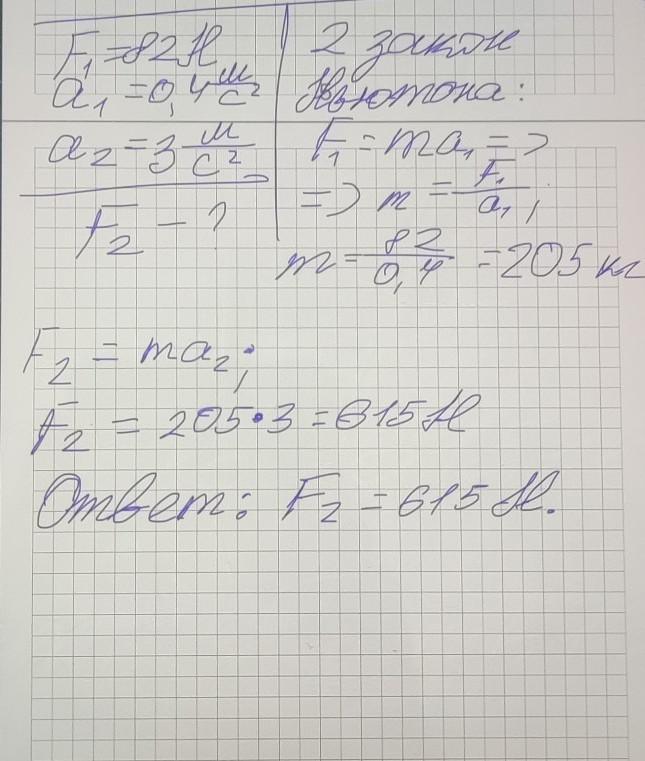 F₁ = 82 Н
a₁ = 0,4 м/с²
a₂ = 3 м/с²
F₂ - ?
2 закон
Ньютона:
F₁ = ma₁ =>
=> m = F₁/a₁,
m = 82/0,4 = 205 кг
F₂ = ma₂;
F₂ = 205·3 = 615 Н
Ответ: F₂ = 615 Н.